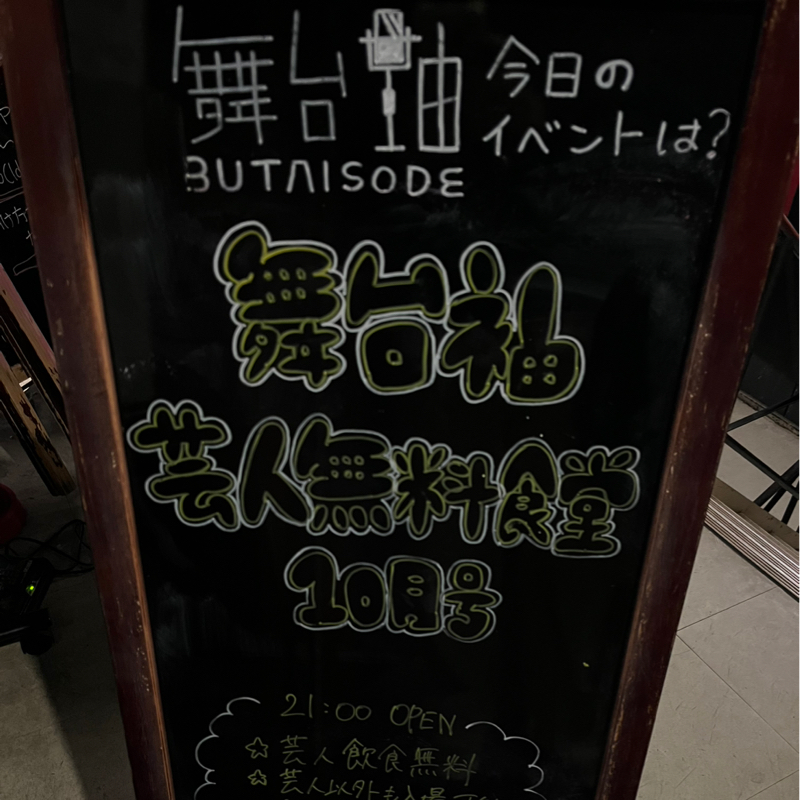 舞台袖 今日の
イベントは?
BUTAISODE
舞台袖
芸人無料食堂
10月号
21:00 OPEN
☆芸人飲食無料
☆芸人以外も入場